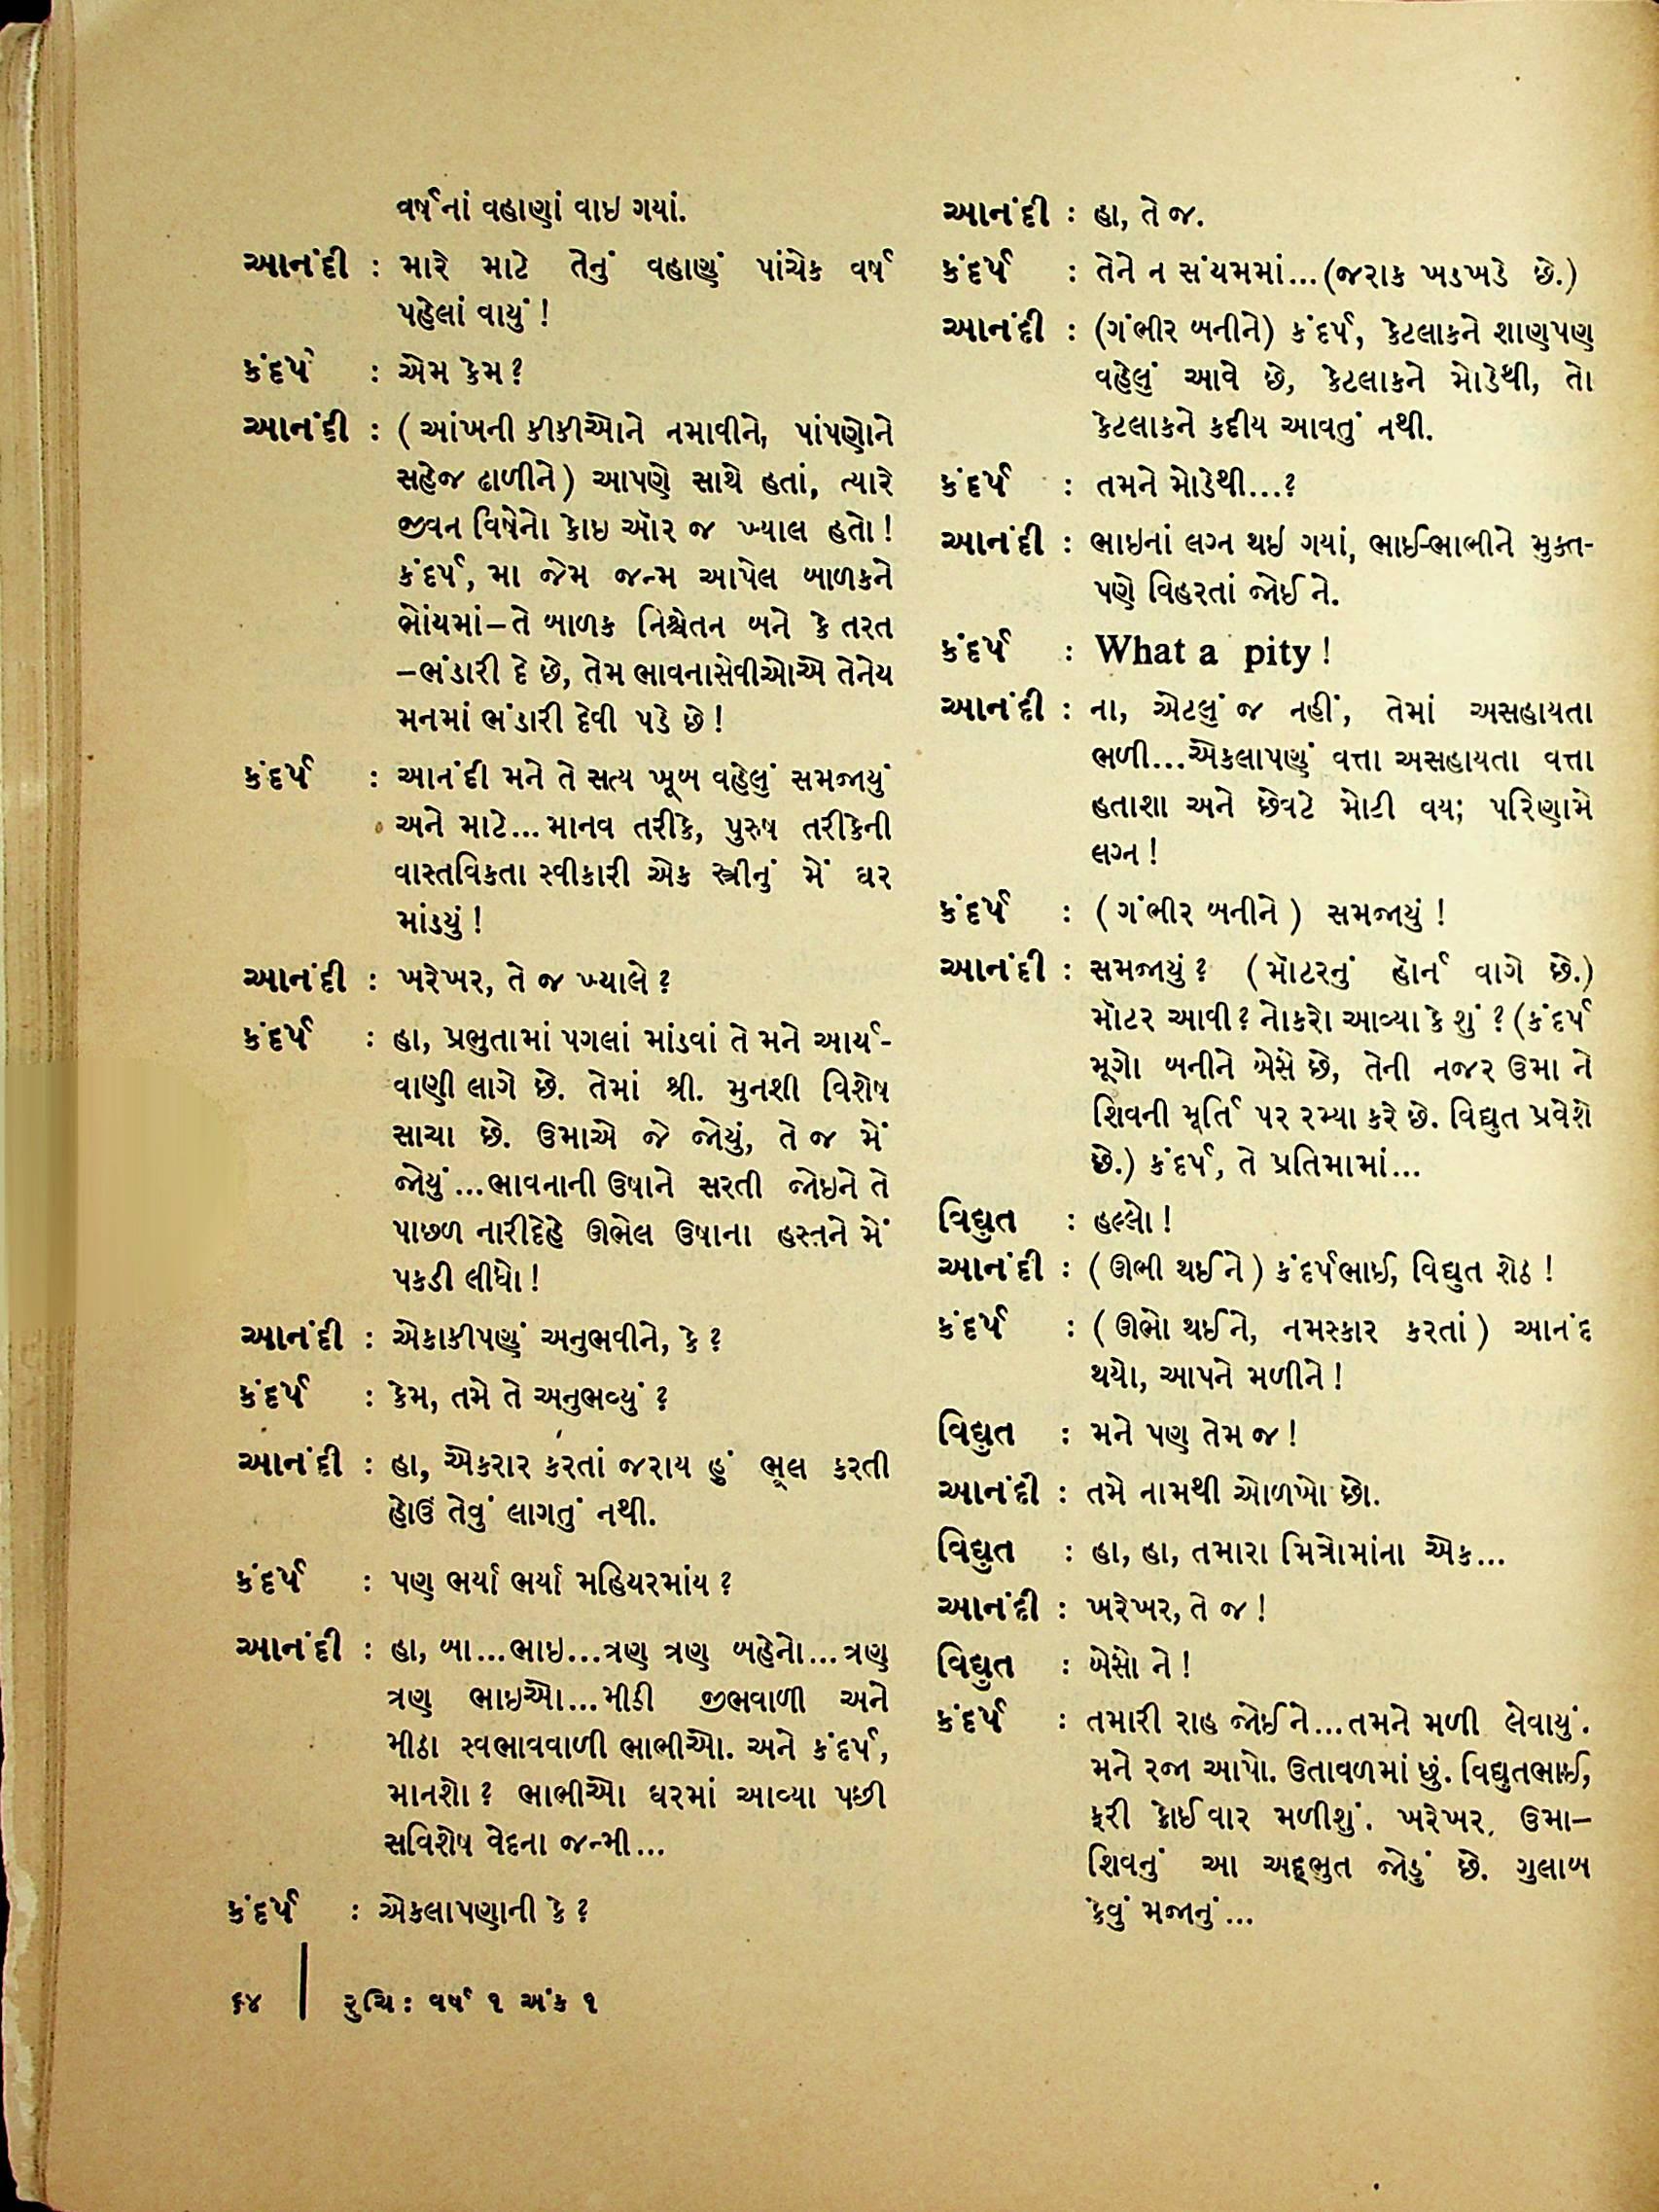 વર્ષનાં વહાણાં વાઇ ગયાં.
આનંદી : મારે માટે તેનું વહાણું પાંચેક વર્ષ
પહેલાં વાયું !
કંદર્પ : એમ કેમ ?
આનંદી : ( આંખની કીકીઓને નમાવીને, પાંપણોને
સહેજ ઢાળીને ) આપણે સાથે હતાં, ત્યારે
જીવન વિષેનો કોઇ ઑર જ ખ્યાલ હતો !
કંદર્પ, મા જેમ જન્મ આપેલ બાળકને
ભોંયમાં–તે બાળક નિશ્ચેતન બને કે તરત
–ભંડારી દે છે, તેમ ભાવનાસેવીઓએ તેનેય
મનમાં ભંડારી દેવી પડે છે !
કંદર્પ : આનંદી મને તે સત્ય ખૂબ વહેલું સમજાયું
અને માટે... માનવ તરીકે, પુરુષ તરીકેની
વાસ્તવિકતા સ્વીકારી એક સ્ત્રીનું મેં ઘર
માંડયું !
આનંદી : ખરેખર, તે જ ખ્યાલે ?
કંદર્પ : હા, પ્રભુતામાં પગલાં માંડવાં તે મને આર્ય-
વાણી લાગે છે. તેમાં શ્રી. મુનશી વિશેષ
સાચા છે. ઉમાએ જે જોયું, તે જ મેં
જોયું...ભાવનાની ઉષાને સરતી જોઇને તે
પાછળ નારીદેહે ઊભેલ ઉષાના હસ્તને મેં
પકડી લીધો !
આનંદી : એકાકીપણું અનુભવીને, કે ?
કંદર્પ : કેમ, તમે તે અનુભવ્યું ?
આનંદી : હા, એકરાર કરતાં જરાય હું ભૂલ કરતી
હોઉં તેવું લાગતું નથી.
કંદર્પ : પણ ભર્યા ભર્યા મહિયરમાંય ?
આનંદી : હા, બા...ભાઇ...ત્રણ ત્રણ બહેનો...ત્રણ
ત્રણ ભાઇઓ...મીઠી જીભવાળી અને
મીઠા સ્વભાવવાળી ભાભીઓ. અને કંદર્પ,
માનશો ? ભાભીઓ ઘરમાં આવ્યા પછી
સવિશેષ વેદના જન્મી...
કંદર્પ : એકલાપણાની કે ?
આનંદી : હા, તે જ.
કંદર્પ : તેને ન સંયમમાં...(જરાક ખડખડે છે.)
આનંદી : (ગંભીર બનીને) કંદર્પ, કેટલાકને શાણપણ
વહેલું આવે છે, કેટલાકને મોડેથી, તો
કેટલાકને કદીય આવતું નથી.
કંદર્પ : તમને મોડેથી...?
આનંદી : ભાઇનાં લગ્ન થઈ ગયાં, ભાઈ-ભાભીને મુક્ત-
પણે વિહરતાં જોઈને.
કંદર્પ : What a pity !
આનંદી : ના, એટલું જ નહીં, તેમાં અસહાયતા
ભળી...એકલાપણું વત્તા અસહાયતા વત્તા
હતાશા અને છેવટે મોટી વય; પરિણામે
લગ્ન !
કંદર્પ : ( ગંભીર બનીને ) સમજાયું !
આનંદી : સમજાયું ? (મૉટરનું હૉર્ન વાગે છે.)
મૉટર આવી ? નોકરો આવ્યા કે શું ? (કંદર્પ
મૂગો બનીને બેસે છે, તેની નજર ઉમા ને
શિવની મૂર્તિ પર રમ્યા કરે છે. વિદ્યુત પ્રવેશે
છે.) કંદર્પ, તે પ્રતિમામાં...
વિદ્યુત : હલ્લો !
આનંદી : ( ઊભી થઈને ) કંદર્પભાઈ, વિદ્યુત શેઠ !
કંદર્પ : ( ઊભો થઈને, નમસ્કાર કરતાં ) આનંદ
થયો, આપને મળીને !
વિદ્યુત : મને પણ તેમ જ !
આનંદી : તમે નામથી ઓળખો છો.
વિદ્યુત : હા, હા, તમારા મિત્રોમાંના એક...
આનંદી : ખરેખર, તે જ !
વિદ્યુત : બેસો ને !
કંદર્પ : તમારી રાહ જોઈને...તમને મળી લેવાયું.
મને રજા આપો. ઉતાવળમાં છું. વિદ્યુતભાઈ,
ફરી કોઈવાર મળીશું. ખરેખર, ઉમા–
શિવનું આ અદ્ભુત જોડું છે. ગુલાબ
કેવું મજાનું...
૬૪ | રુચિ : વર્ષ ૧ અંક ૧